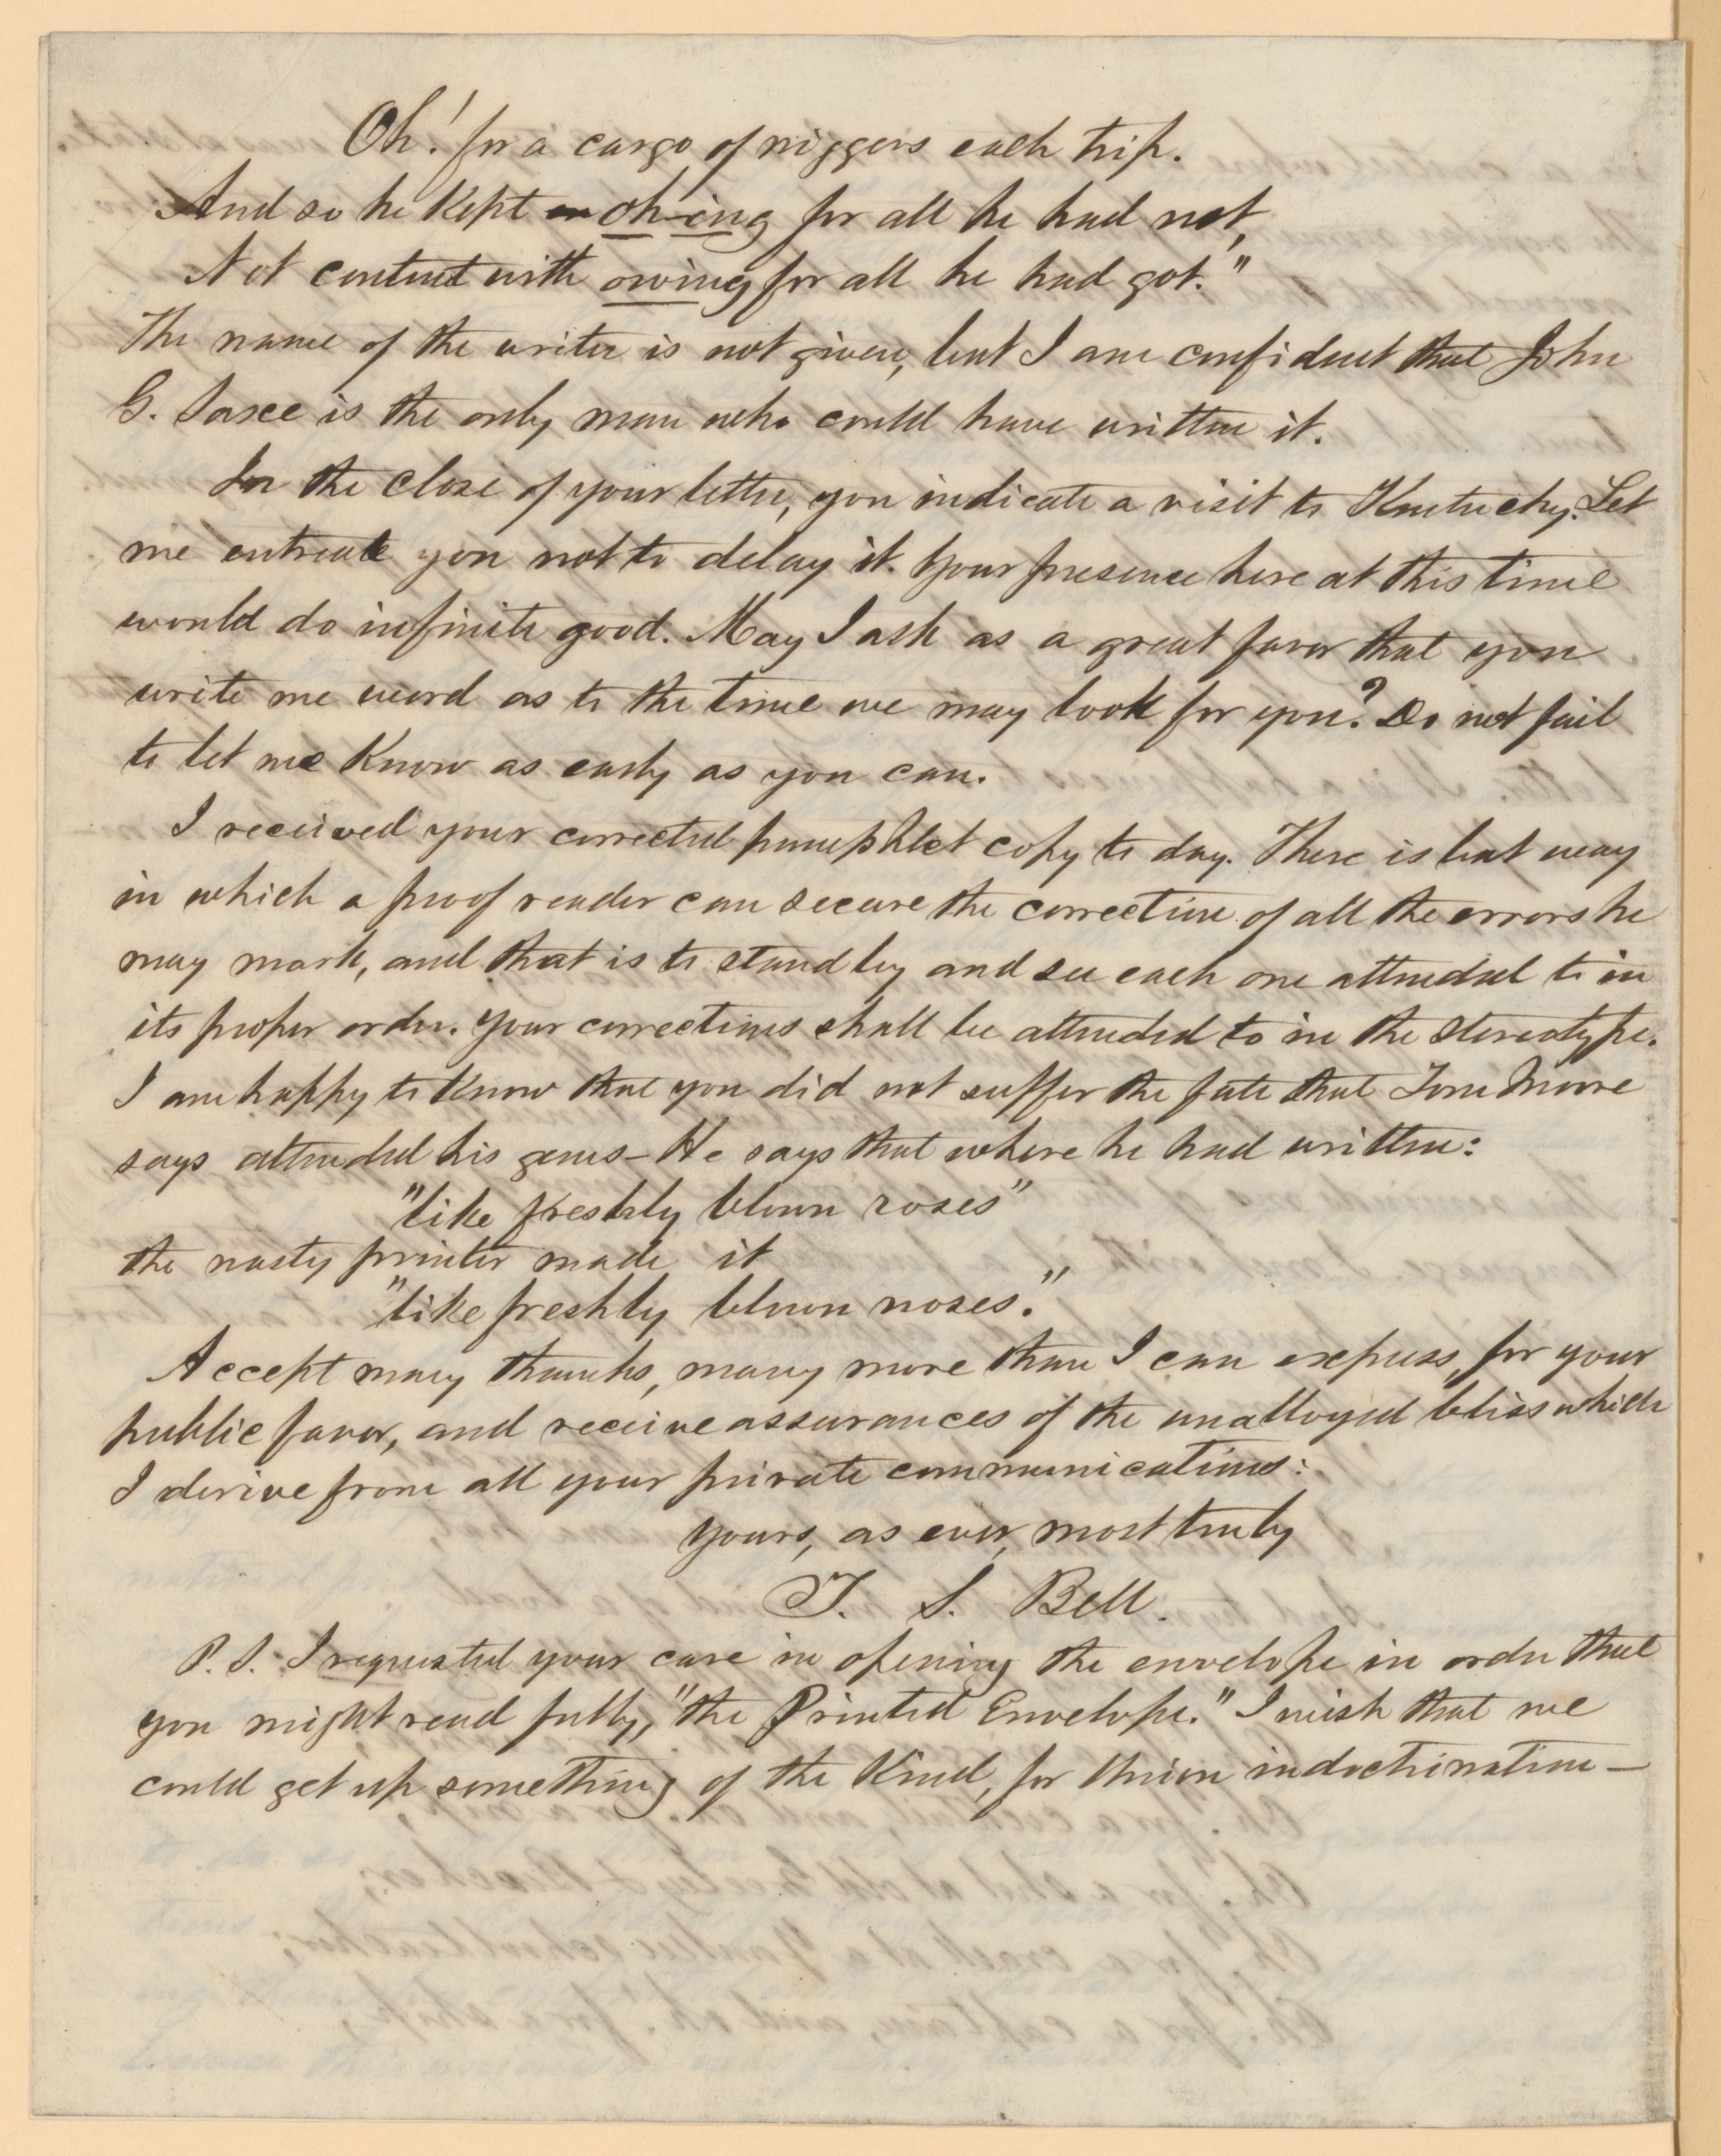 Oh! for a cargo of niggers each trip.
And so he kept on oh-ing for all he had not,
Not content with owing for all he had got."
The name of the writer is not given, but I am confident that John
G. Saxe is the only man who could have written it.
In the close of your letter, you indicate a visit to Kentucky. Let
me entreat you not to delay it. Your presence here at this time
would do infinite good. May I ask as a great favor that you
write me word as to the time we may look for you? Do not fail
to let me know as early as you can.
I received your corrected pamphlet copy to day. There is but way
in which a proof reader can secure the correction of all the errors he
may mark, and that is to stand by and see each one attended to in
its proper order. Your corrections shall be attended to in the stereotype.
I am happy to know that you did not suffer the fate that Tom Moore
says attended his gems - He says that where he had written:
"like freshly blown roses"
the nasty printer made it
"like freshly blown noses."
Accept many thanks, many more than I can express, for your
public favor, and receive assurances of the unalloyed bliss which
I derive from all your private communications:
Yours, as ever, most truly
T. S. Bell.
P.S. I requested your care in opening the envelope in order that
you might read fully, "the Printed Envelope." I wish that we
could get up something of the kind, for Union indoctrination —